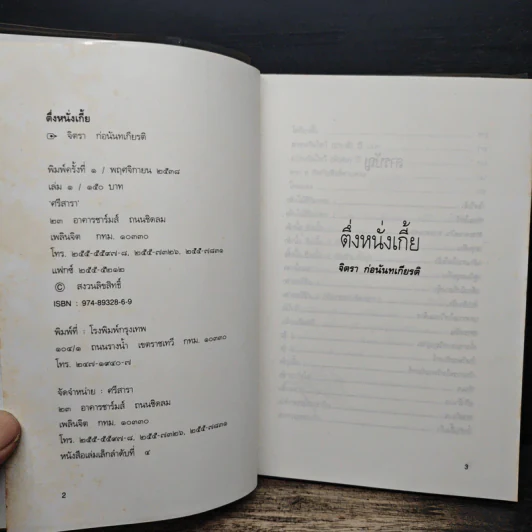 ตึ่งหนั่งเกี้ย
จิตรา ก่อนันทเกียรติ
พิมพ์ครั้งที่ ๑ / พฤศจิกายน ๒๕๓๘
เล่ม ๑ / ๑๕๐ บาท
'ศรีสารา'
๒๓ อาคารชาร์มส์ ถนนชิดลม
เพลินจิต กทม. ๑๐๓๓๐
โทร. ๒๕๕-๕๕๙๗-๘, ๒๕๕-๗๓๒๖, ๒๕๕-๗๘๓๑
แฟกซ์ ๒๕๕-๕๒๑๒
© สงวนลิขสิทธิ์
ISBN : 974-89328-6-9
พิมพ์ที่ : โรงพิมพ์กรุงเทพ
๑๐๙/๑ ถนนรางน้ำ เขตราชเทวี กทม. ๑๐๓๓๐
โทร. ๒๔๗-๑๙๔๐-๗
จัดจำหน่าย : ศรีสารา
๒๓ อาคารชาร์มส์ ถนนชิดลม
เพลินจิต กทม. ๑๐๓๓๐
โทร. ๒๕๕-๕๕๙๗-๘, ๒๕๕-๗๓๒๖, ๒๕๕-๗๘๓๑
หนังสือเล่มเล็กลำดับที่ ๔
2
ตึ่งหนั่งเกี้ย
จิตรา ก่อนันทเกียรติ
3